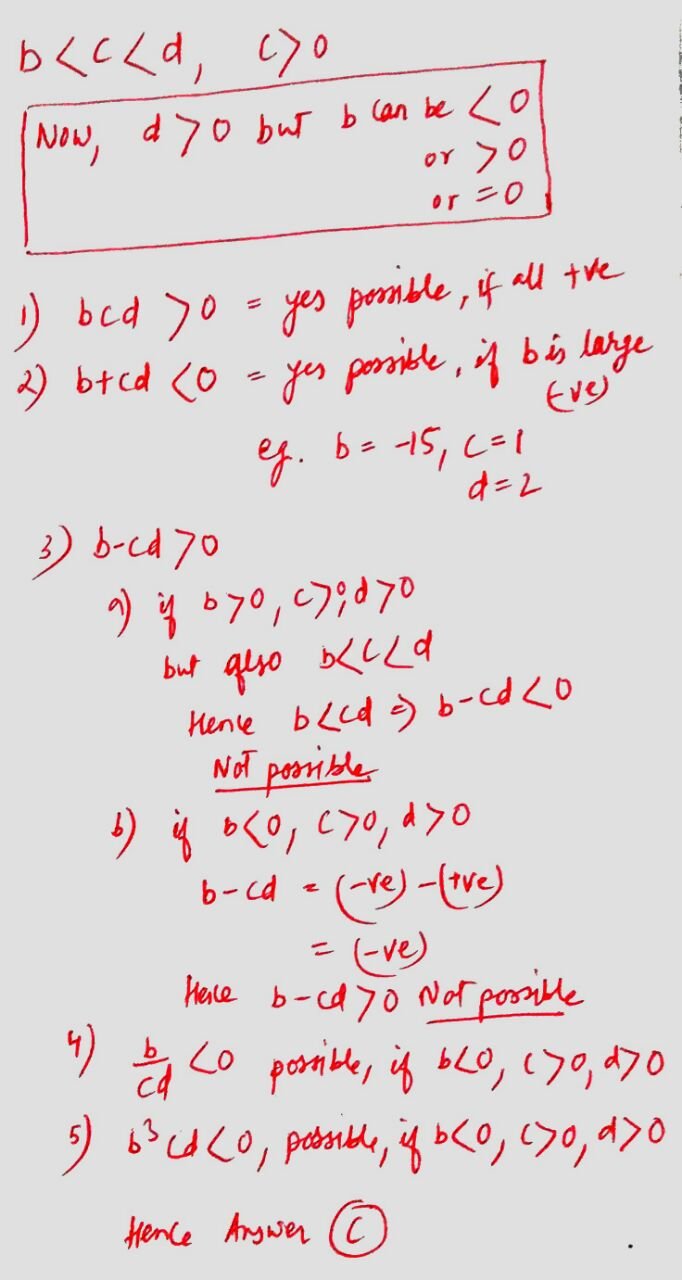 b<c<d, c>0
Now, d>0 but b can be <0
or >0
or =0
1) bcd >0 = yes possible, if all +ve
2) b+cd <0 = yes possible, if b is large
(-ve)
eg. b= -15, c=1
d=2
3) b-cd>0
a) if b>0, c>0, d>0
but also b<c<d
Hence b<cd => b-cd<0
Not possible
b) if b<0, c>0, d>0
b-cd = (-ve) -(+ve)
= (-ve)
Hence b-cd>0 Not possible
4) b/cd <0 possible, if b<0, c>0, d>0
5) b³cd<0, possible, if b<0, c>0, d>0
Hence Answer C